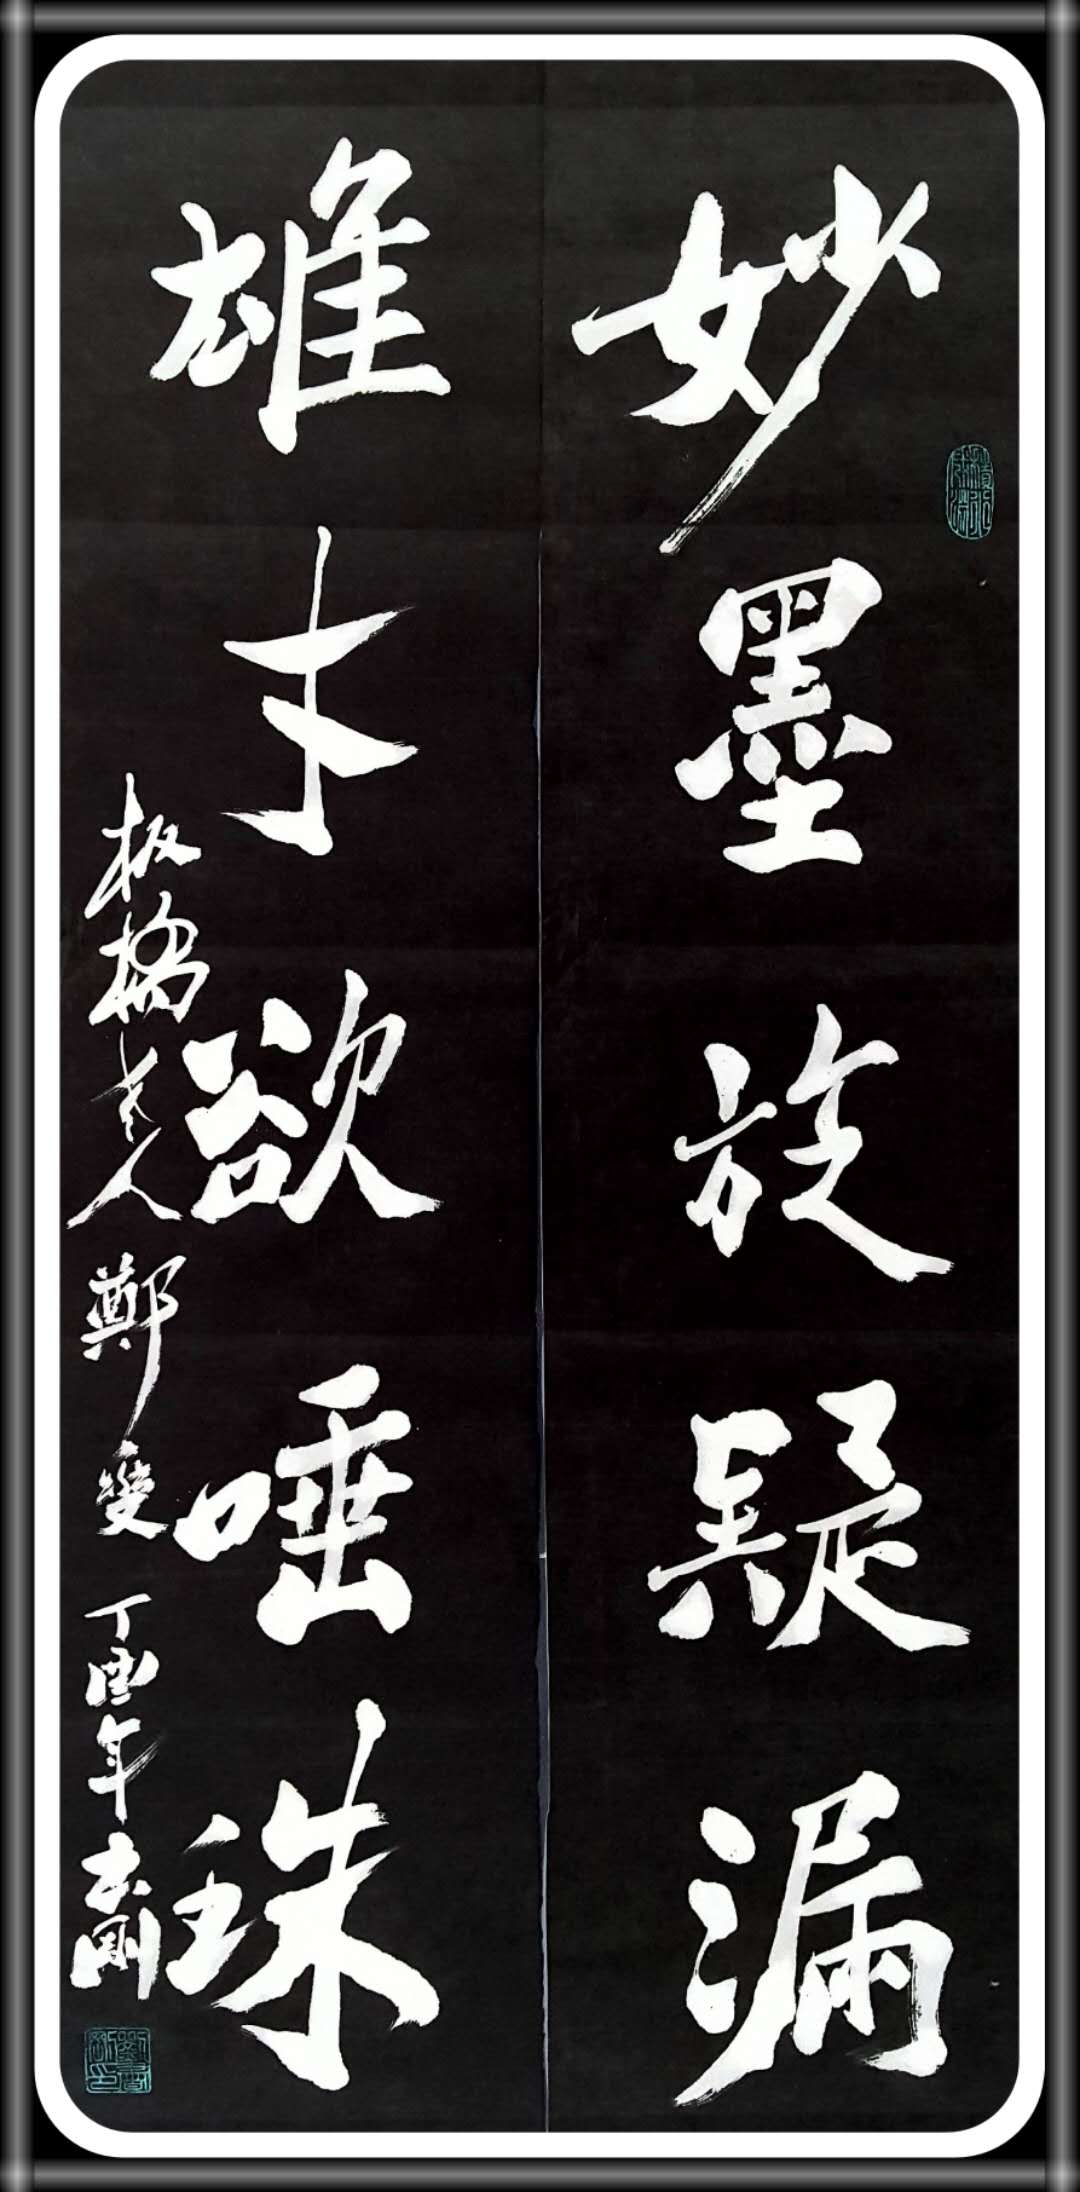 妙墨旋疑漏
雄才欲唾珠
板橋老人鄭燮 丁酉年 剛